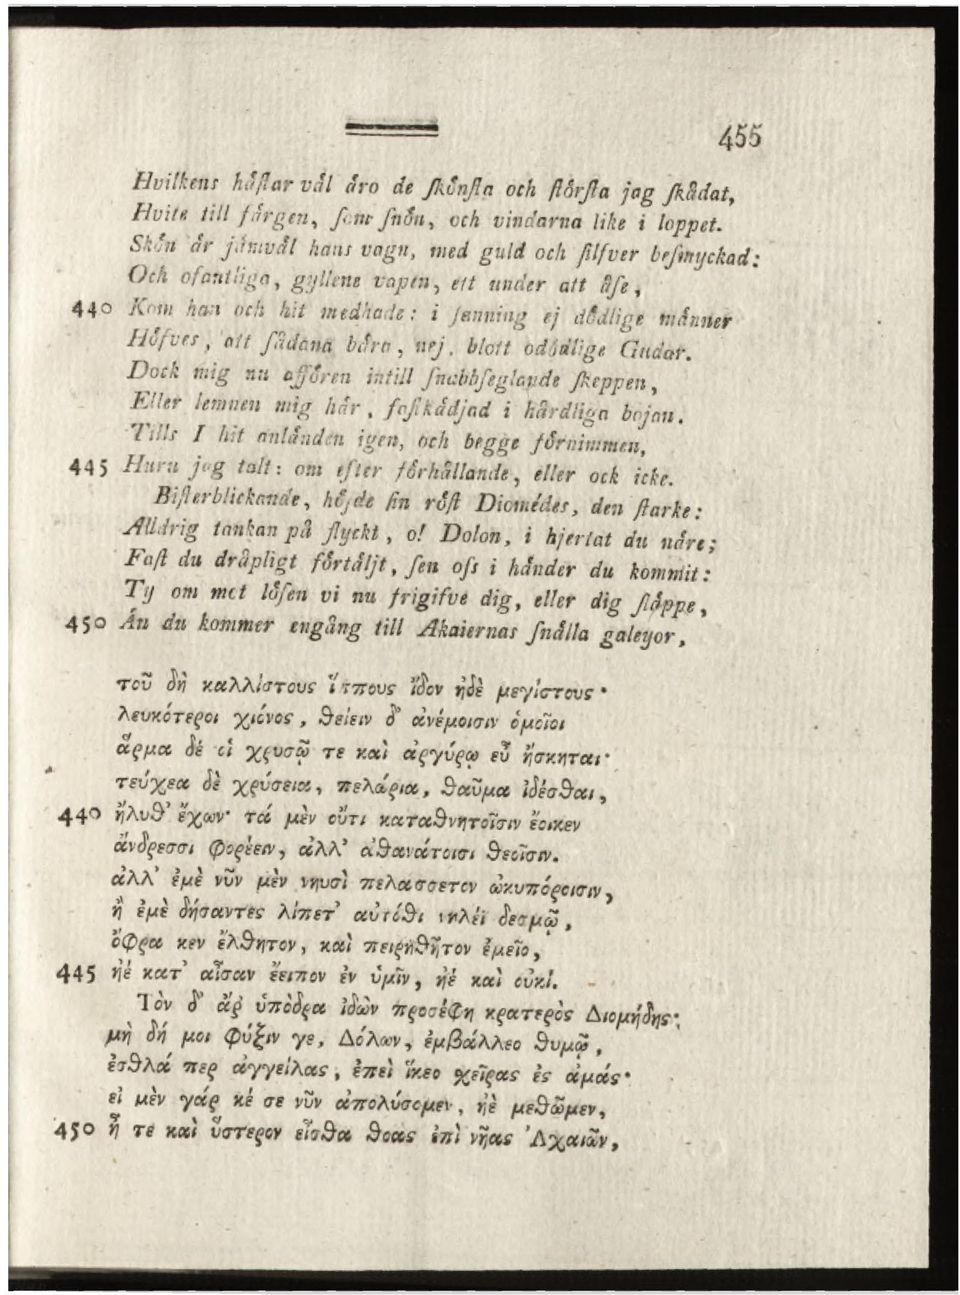 455
Hvilkens håſtar vål åro de ſkőnſta och ſtőrſta jag ſkådat,
Hvite till fårgen, ſom ſnőn, och vindarna like i loppet.
Skőn år jåmvål hans vagn, med guld och ſilfver beſmyckad:
Och ofantliga, gyllene vapen, ett under att åſe,
440 Kom han och hit medhade: i ſanning ej dődlige månner
Hőfves, att ſådana båra, nej, blott odődlige Gudar.
Dock mig nu affören intill ſnabbſeglande ſkeppen,
Eller lemnen mig hår, faſtkådjad i hårdliga bojan.
Tills I hit anlånden igen, och begge főrnimmen,
445 Huru jag talt: om efter főrhållande, eller ock icke.
Biſterblickande, hőjde ſin rőſt Diomédes, den ſtarke:
Alldrig tankan på flyckt, o! Dolon, i hjertat du nåre;
Faſt du dråpligt főrtåljt, ſen oſs i hånder du kommit:
Ty om mot lőſen vi nu frigifve dig, eller dig ſlåppe,
450 Ån du kommer engång till Akaiernas ſnålla galeyor,
τοῦ δὴ καλλίστους ἵππους ἴδον ἠδὲ μεγίστους·
λευκότεροι χιόνος, θείειν δ' ἀνέμοισιν ὁμοῖοι
ἅρμα δέ οἱ χρυσῷ τε καὶ ἀργύρῳ εὖ ἤσκηται·
τεύχεα δὲ χρύσεια, πελώρια, θαῦμα ἰδέσθαι,
440 ἤλυθ' ἔχων· τά μὲν οὔτι καταθνητοῖσιν ἔοικεν
ἄνδρεσσι φορέειν, ἀλλ' ἀθανάτοισι θεοῖσιν.
ἀλλ' ἐμὲ νῦν μὲν νηυσὶ πελασσετον ὠκυπόροισιν,
ἢ ἐμὲ δήσαντες λίπετ' αὐτόθι νηλέϊ δεσμῷ,
ὄφρα κεν ἔλθητον, καὶ πειρηθῆτον ἐμεῖο,
445 ἠέ κατ' αἶσαν ἔειπον ἐν ὑμῖν, ἠέ καὶ οὐκί.
Τὸν δ' ἄρ ὑπόδρα ἰδὼν προσέφη κρατερὸς Διομήδης·
μὴ δή μοι φύξιν γε, Δόλων, ἐμβάλλεο θυμῷ,
ἐσθλά περ ἀγγείλας, ἐπεὶ ἵκεο χεῖρας ἐς ἁμάς·
εἰ μὲν γάρ κέ σε νῦν ἀπολύσομεν, ἠὲ μεθῶμεν,
450 ἦ τε καὶ ὕστερον εἶσθα θοας ἐπὶ νῆας Ἀχαιῶν,